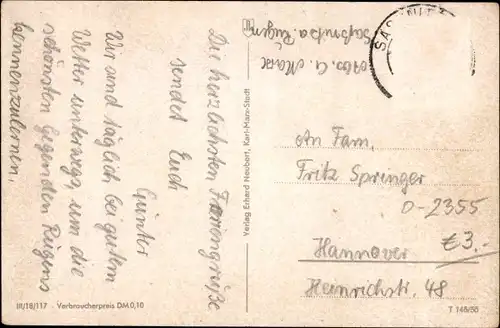 Saßnitz a. Rügen
Die herzlichsten Feriengrüße
sendet Euch
Günter
Wir sind täglich bei gutem
Wetter unterwegs, um die
schönsten Gegenden Rügens
kennenzulernen.
III/18/117 - Verbraucherpreis DM 0,10
Verlag Erhard Neubert, Karl-Marx-Stadt
SASSNITZ
An Fam.
Fritz Springer
D-2355
€3.-
Hannover
Heinrichstr. 48